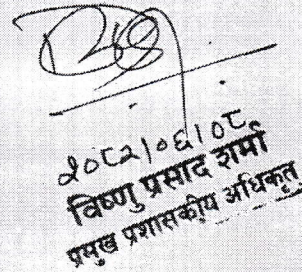 २०८२।०६।०८
विष्णु प्रसाद शर्मा
प्रमुख प्रशासकीय अधिकृत